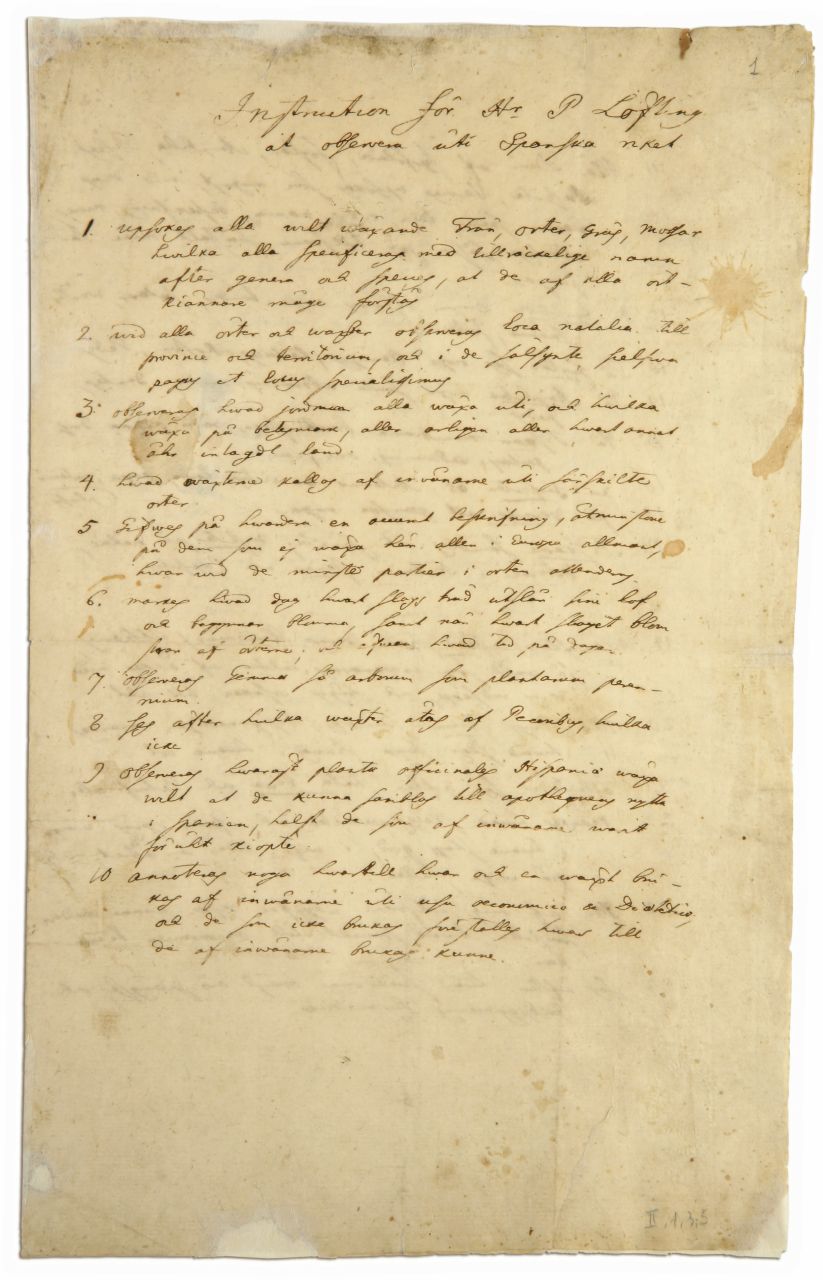 1
Instruction för Hr P Löfling
at observera uti Spanska riket
1. upsökes alla wilt wäxande Trän, örter, gräs, mossar
hwilka alla specificeras med tillräckelige namn
after genera och species, at de af alla ört-
kiännare måge förstås
2. wid alla örter och waxter observeras loca natalia till
province och territorium, och i de sälsynte sielfwa
pagus et locus specialissimus
3. observeras hwad jordman alla wäxa uti, och hwilka
wäxa på betesmark, aller äs aller hwart annat
ähr intagdt land.
4. hwad wäxterne kallas af inwånarne uti särskilte
orter.
5 Gifwes på hwardera en accurat beskrifning, åtminstone
på dem som ej wäxa här aller i Europa allmänt,
hwar wid de minste partier i örten attenderas
6. märkes hwad dag hwart slags träd utslår sine löf
och begynner blomma, samt när hwart slaget blom
stren af örterne, och äfwen hwad tid på dagen.
7. observeras Gemmæ så arborum som plantarum peren-
nium.
8 Ses after hwilka waxter ätas af Pecoribus, hwilka
icke
9 observeras hwaräst plantæ officinales Hispaniæ wäxa
wilt at de kunna samblas till apothequens nytta
i Spanien, hälst de som af inwånarne warit
förut kiöpte.
10 annoteras noga hwartill hwar och en waxt bru-
kas af inwånarne uti usu oeconomico & Diætetico,
och de som icke brukas föreställes hwar till
de af inwånarne brukas kunne.
II,1,3:5